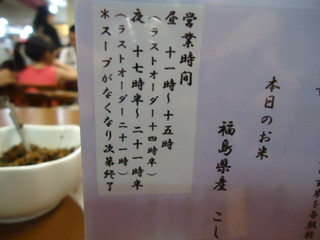 営業時間
昼　十一時～十五時
（ラストオーダー十四時半）
夜　十七時半～二十一時半
（ラストオーダー二十一時）
＊スープがなくなり次第終了
本日のお米
福島県産　こし